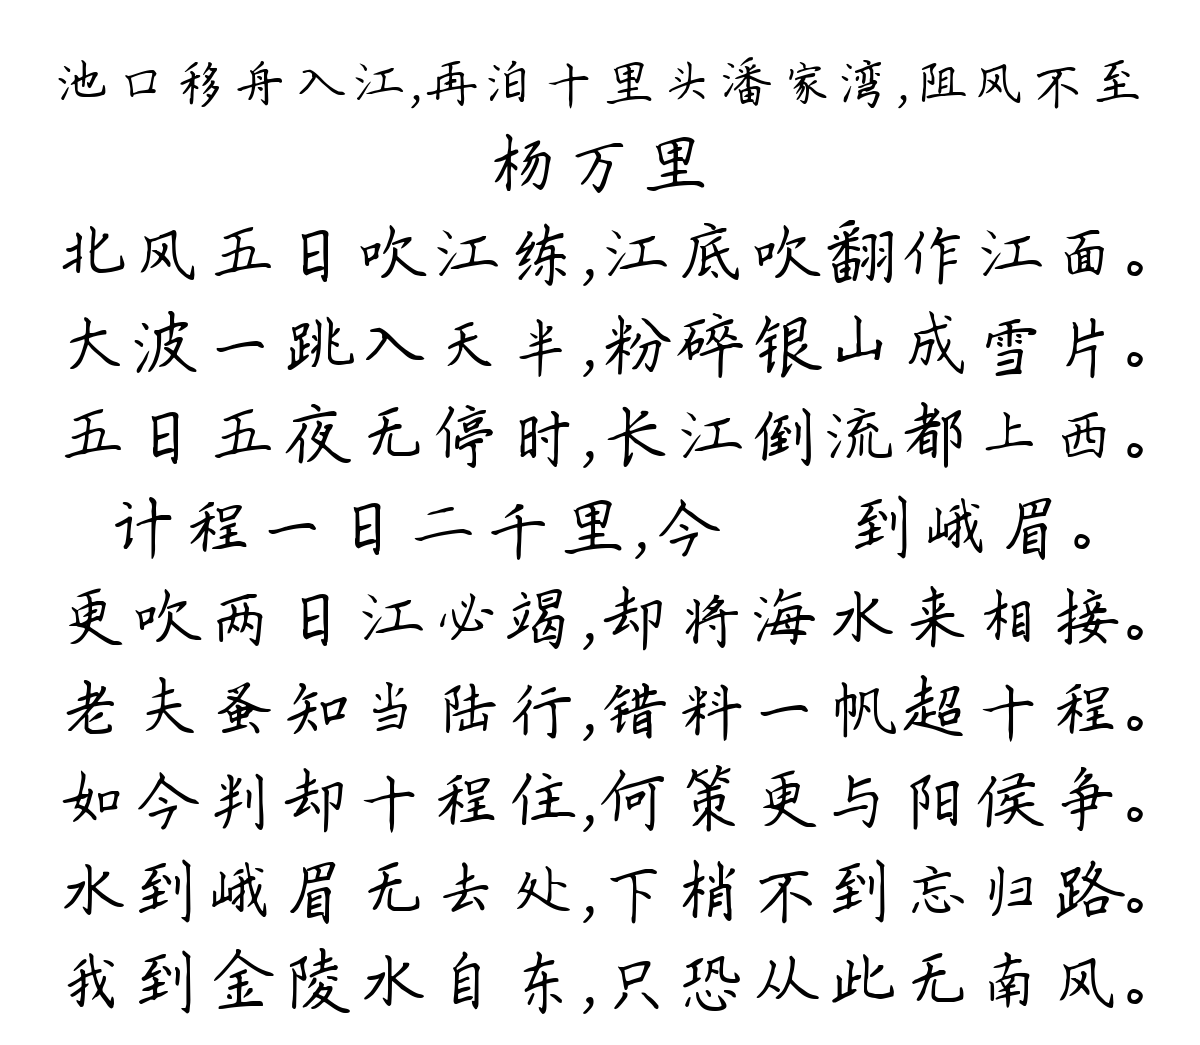 池口移舟入江,再泊十里头潘家湾,阻风不至
杨万里
北风五日吹江练,江底吹翻作江面。
大波一跳入天半,粉碎银山成雪片。
五日五夜无停时,长江倒流都上西。
计程一日二千里,今　到峨眉。
更吹两日江必竭,却将海水来相接。
老夫蚤知当陆行,错料一帆超十程。
如今判却十程住,何策更与阳侯争。
水到峨眉无去处,下梢不到忘归路。
我到金陵水自东,只恐从此无南风。